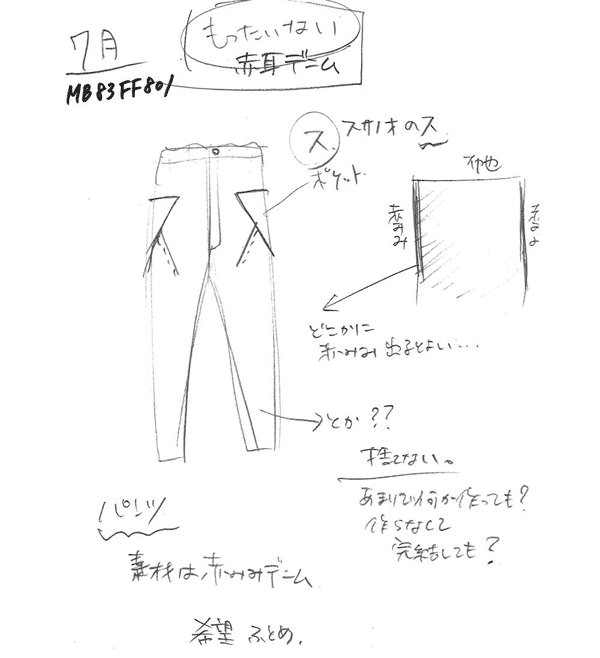 7月
もったいない
赤耳デニム
MB83FF801
ス スサノオのス
ポケット
布地
赤みみ
赤みみ
どこかに
赤みみ出るとよい…
とか??
捨てない。
あまりで何か作っても?
作らなくて
完結しても?
パンツ
素材は赤みみデニム
希望 ふとめ.